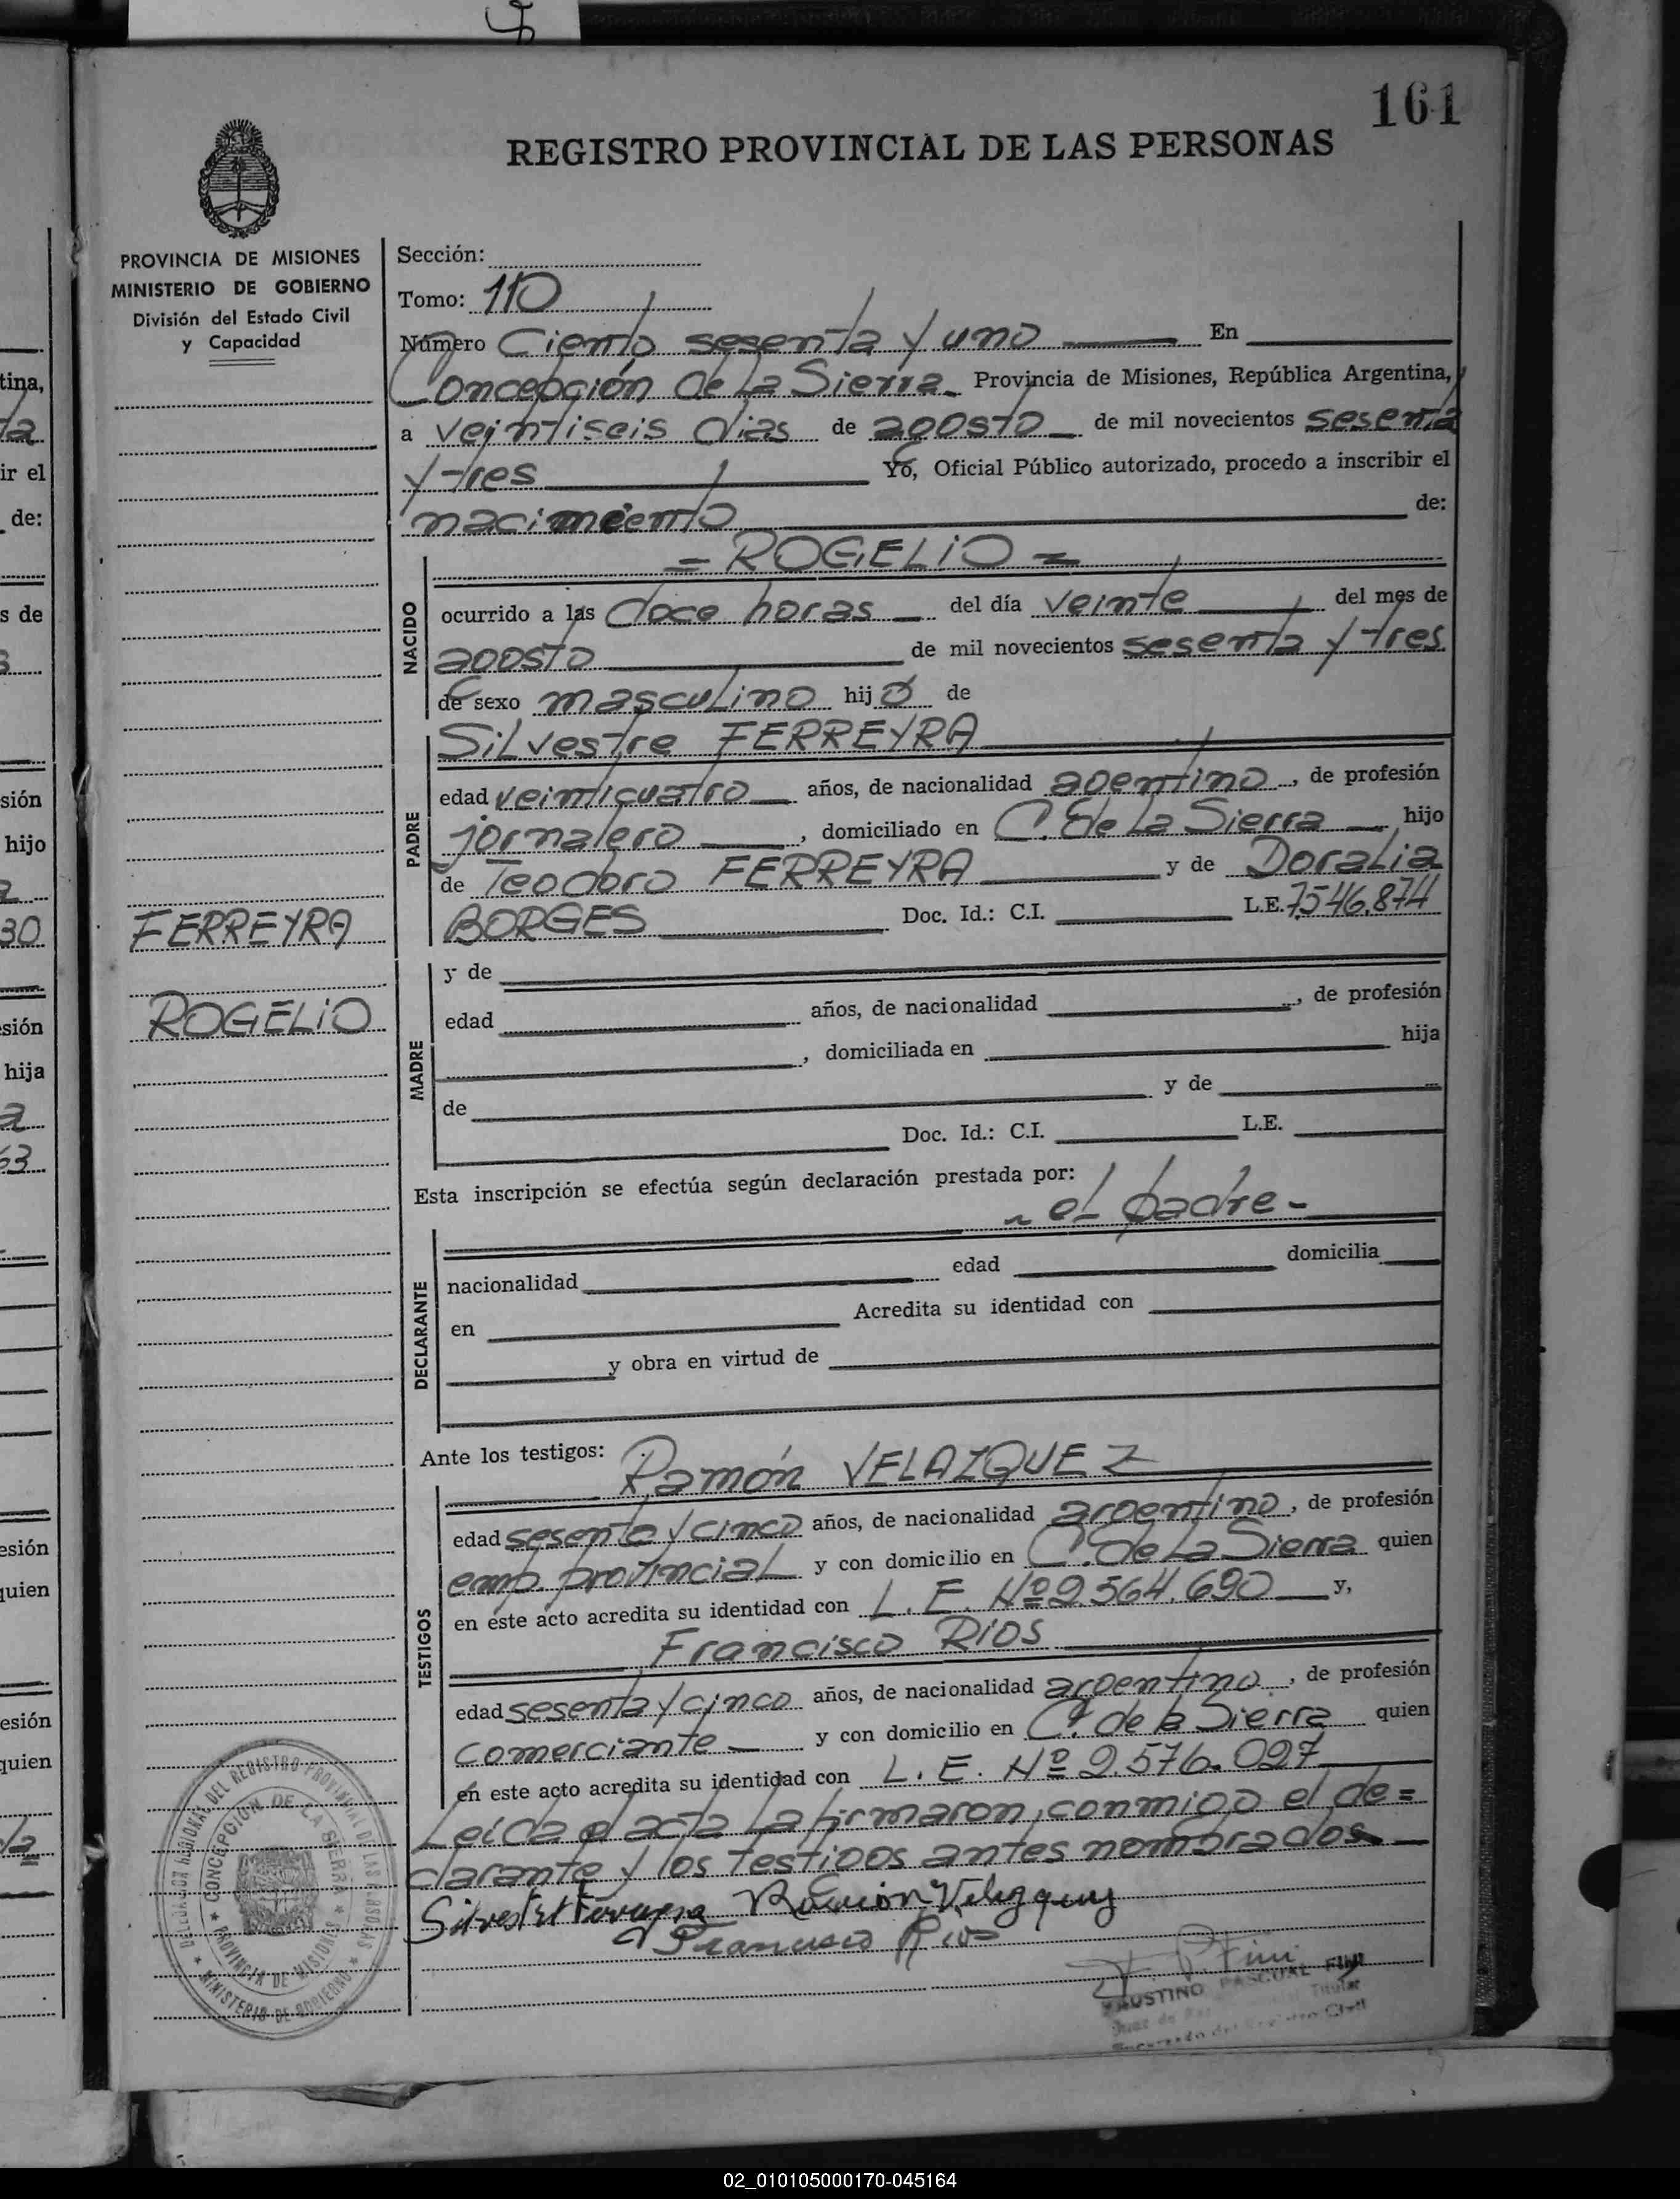 161
REGISTRO PROVINCIAL DE LAS PERSONAS
PROVINCIA DE MISIONES
MINISTERIO DE GOBIERNO
División del Estado Civil
y Capacidad
FERREYRA
ROGELIO
Sección:
Tomo: 110
Número Ciento sesenta y uno En
Concepción de La Sierra Provincia de Misiones, República Argentina,
a veintiseis dias de agosto de mil novecientos sesenta
y tres Yo, Oficial Público autorizado, procedo a inscribir el
nacimiento de:
= ROGELIO =
NACIDO
ocurrido a las doce horas del día veinte del mes de
agosto de mil novecientos sesenta y tres
de sexo masculino hijo de
Silvestre FERREYRA
PADRE
edad veinticuatro años, de nacionalidad agentino, de profesión
jornalero, domiciliado en C. de La Sierra hijo
de Teodoro FERREYRA y de Doralia
BORGES Doc. Id.: C.I. L.E. 7.546.874
MADRE
y de
edad años, de nacionalidad , de profesión
, domiciliada en hija
de y de
Doc. Id.: C.I. L.E.
Esta inscripción se efectúa según declaración prestada por:
- el padre -
DECLARANTE
nacionalidad edad domicilia
en Acredita su identidad con
y obra en virtud de
Ante los testigos: Ramón VELAZQUEZ
TESTIGOS
edad sesenta y cinco años, de nacionalidad argentino, de profesión
emp. provincial y con domicilio en C. de La Sierra quien
en este acto acredita su identidad con L.E. Nº 2.564.690 y,
Francisco RIOS
edad sesenta y cinco años, de nacionalidad argentino, de profesión
comerciante y con domicilio en C. de la Sierra quien
en este acto acredita su identidad con L.E. Nº 2.576.027
Leida el acta la firmaron, conmigo el de=
clarante y los testigos antes nombrados
Silvestre Ferreyra Ramón Velazquez
Francisco Rios
F. P. Fini
FAUSTINO PASCUAL FINI
DELEGACION REGIONAL DEL REGISTRO PROVINCIAL DE LAS PERSONAS
CONCEPCION DE LA SIERRA
PROVINCIA DE MISIONES
MINISTERIO DE GOBIERNO
tina,
ta
ir el
de:
s de
sión
hijo
30
sión
hija
a
63
esión
quien
esión
quien
la
02_010105000170-045164